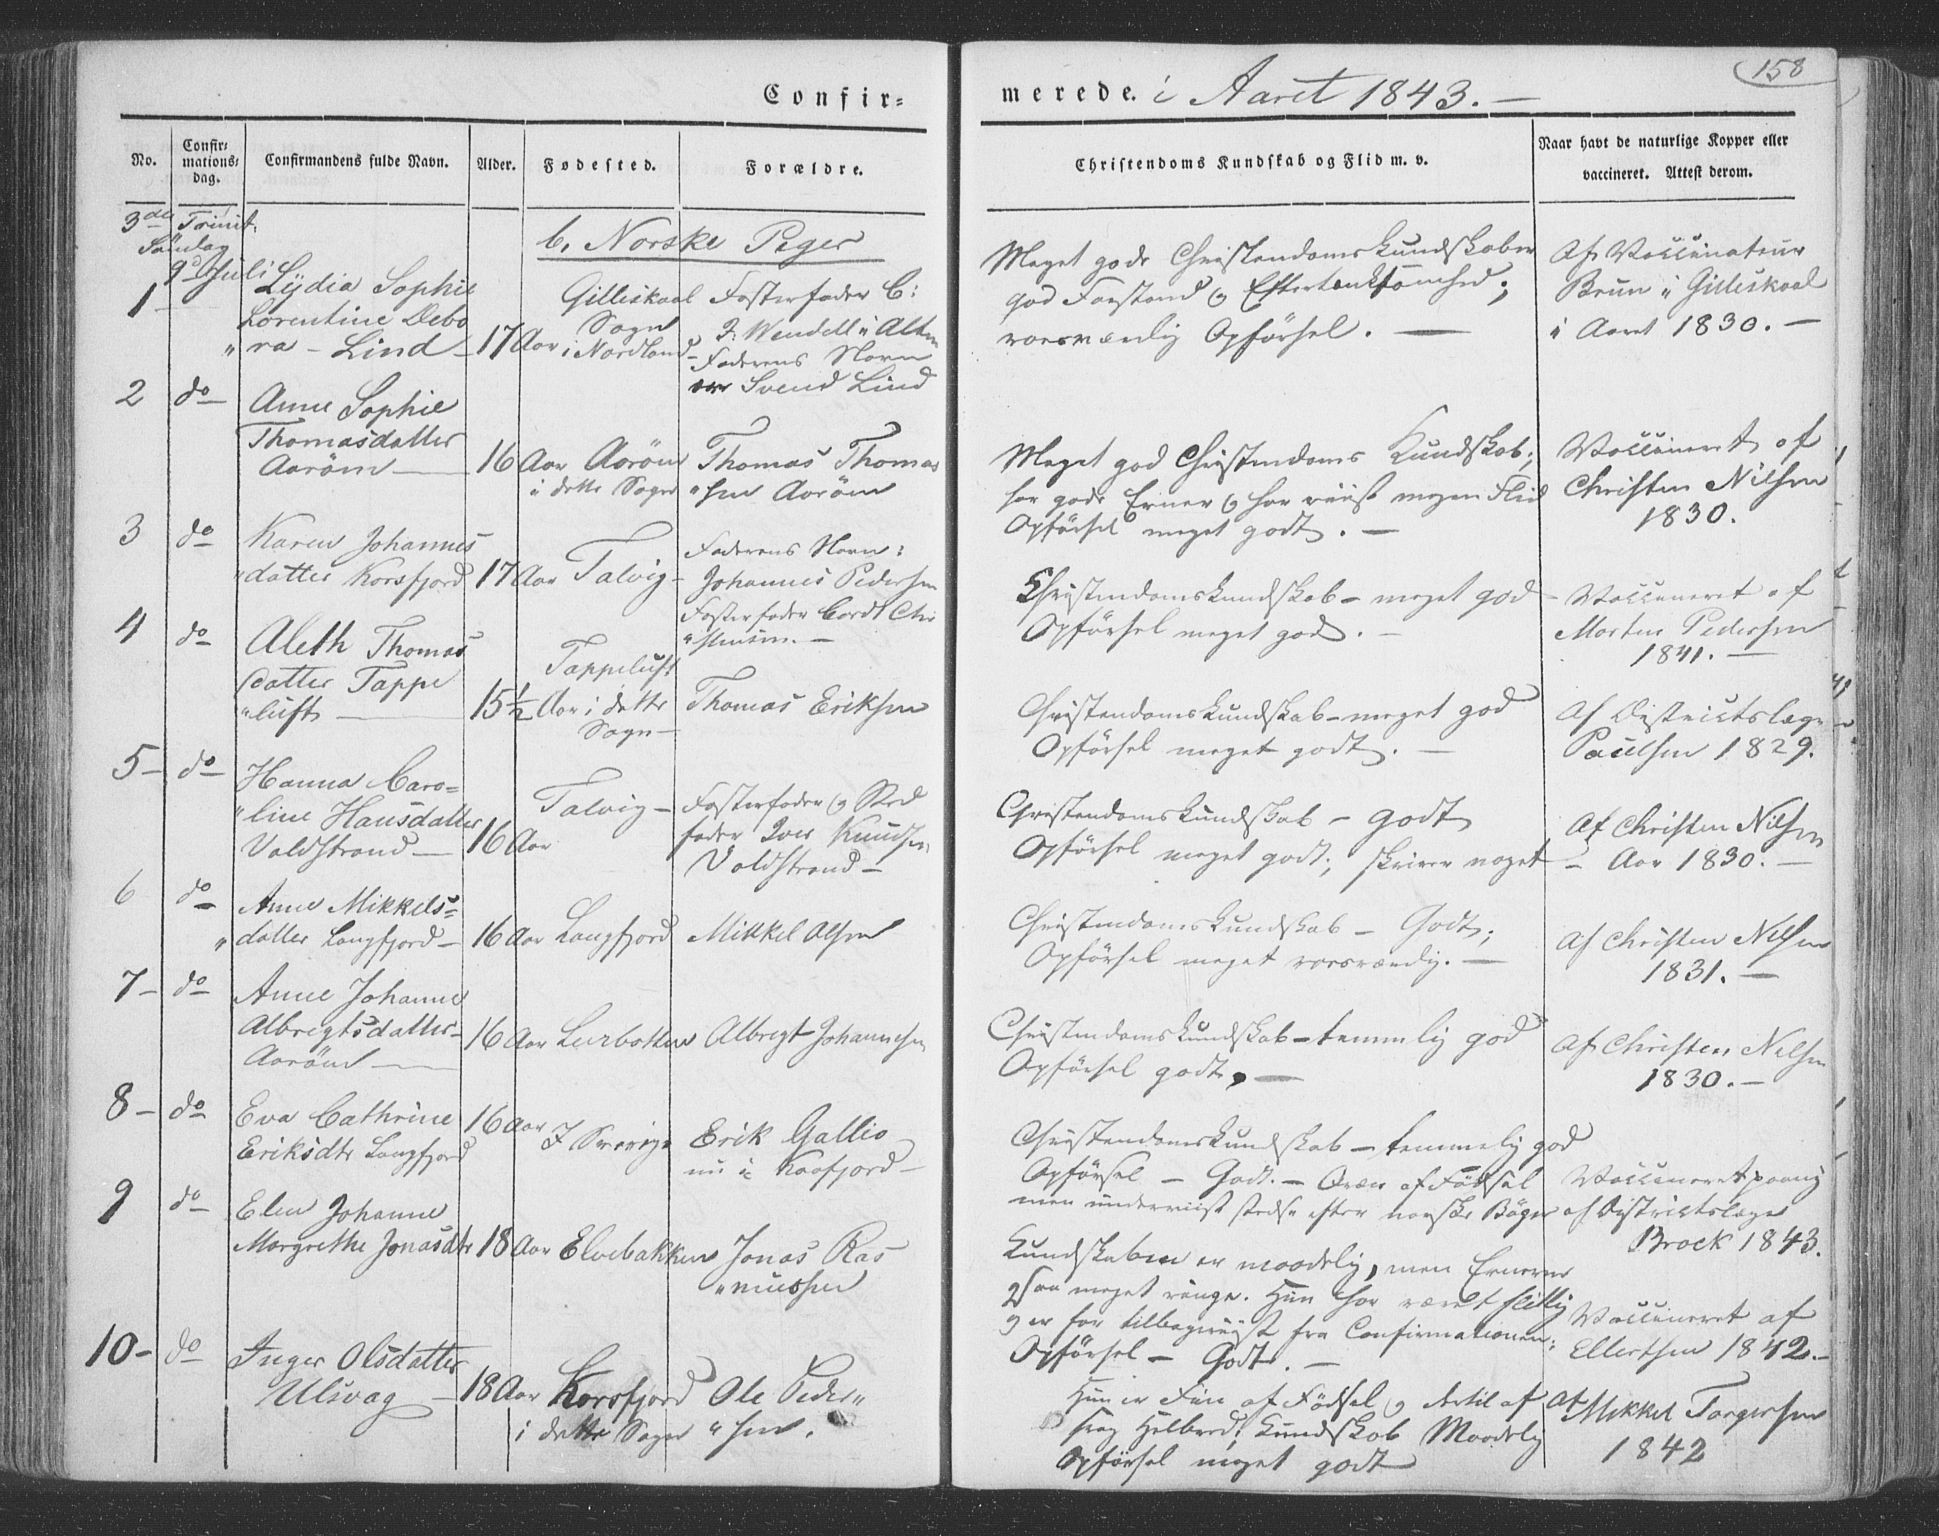 158
Confir=
merede. i Aaret 1843. —
No.
Confir=
mations=
dag.
Confirmandens fulde Navn.
Alder.
Fødested.
Forældre.
Christendoms Kundskab og Flid m. v.
Naar havt de naturlige Kopper eller
vaccineret. Attest derom.
3die Trinit.
Søndag
9d Juli
b. Norske Piger
1 -
Lydia Sophie
Lorentine Debo
"ra - Lind -
17 Aar
Gilleskaal
Sogn
i Nordland
Fosterfader C:
J: Wendell i Alten
Faderens Navn
er Svend Lind
Meget gode Christendomskundskaber
god Forstand og Eftertænksomhed;
roesværdig Opførsel. —
Af Vaccinateur
Brun i Gilleskaal
i Aaret 1830. —
2
do
Anne Sophie
Thomasdatter
Aarøen —
16 Aar
Aarøen
i dette Sogn
Thomas Thomas
"sen Aarøen
Meget god Christendoms Kundskab;
har gode Evner og har viist megen Flid
Opførsel meget godt. —
Vaccineret af
Christen Nilsen
1830.
3
do
Karen Johannes
"datter Korsfjord
17 Aar
Talvig -
Faderens Navn:
Johannes Pedersen
Fosterfader Cordt Chri
"stensen. —
Christendomskundskab - meget god
Opførsel meget god. -
Vaccineret af
Morten Pedersen
1841. —
4
do
Aleth Thomas
datter Tappe
"luft —
15½ Aar
Tappeluft
i dette
Sogn -
Thomas Eriksen
Christendomskundskab - meget god
Opførsel meget godt. —
Af Districtslæge
Paulsen 1829.
5 -
do
Hanna Caro=
"line Hansdatter
Valdstrand —
16 Aar
Talvig -
Fosterfader og Sted
fader Iver Knudsen
Valdstrand -
Christendomskundskab - godt
Opførsel meget godt; skriver noget
Af Christen Nilsen
- Aar 1830. —
6
do
Anne Mikkels=
"datter Langfjord -
16 Aar
Langfjord
Mikkel Olsen
Christendomskundskab - Godt;
Opførsel meget roesværdig. —
Af Christen Nilsen
1831. —
7 -
do
Anne Johanne
Albregtsdatter -
Aarøen —
16 Aar
Lerbotten
Albregt Johannesen
Christendomskundskab - temmelig god
Opførsel godt. —
Af Christen Nilsen
1830. -
8 -
do
Eva Cathrine
Eriksdtr Langfjord
16 Aar
I Sverige
Erik Gallio
nu i Kaafjord -
Christendomskundskab - temmelig god
Opførsel - Godt. - Qvæn af Fødsel
men underviist stedse efter norske Bøger
Vaccineret paany
af Districtslæge
Brock 1843.
9
do
Elen Johanne
Margrethe Jonasdtr
18 Aar
Elvebakken
Jonas Ras
"mussen
Kundskaben er maadelig, men Evnerne
saa meget ringe. Hun har været flittig
og er før tilbageviist fra Confirmationen;
Opførsel - Godt. —
Vaccineret af
Ellertsen 1842. -
10 -
do
Inger Olsdatter
Ulsvag -
18 Aar
Korsfjord
i dette Sogn
Ole Peder"
"sen.
Hun er Fin af Fødsel og dertil af
svag Helbred; Kundskab Maadelig
Opførsel meget godt
Af Mikkel Torgersen
1842